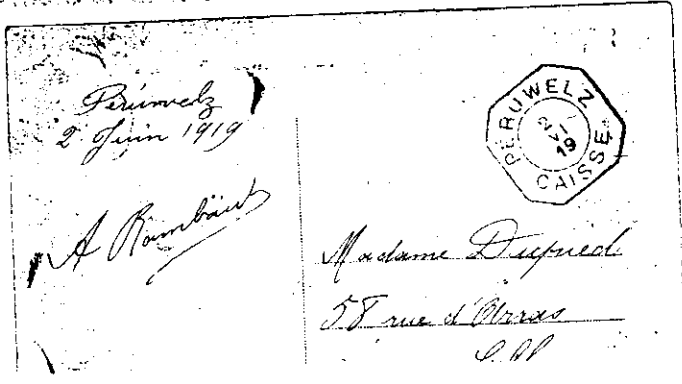 Péruwelz
2 Juin 1919
A Rambaut
PÉRUWELZ
19
CAISSE
Madame Dupied
58 rue d'Arras